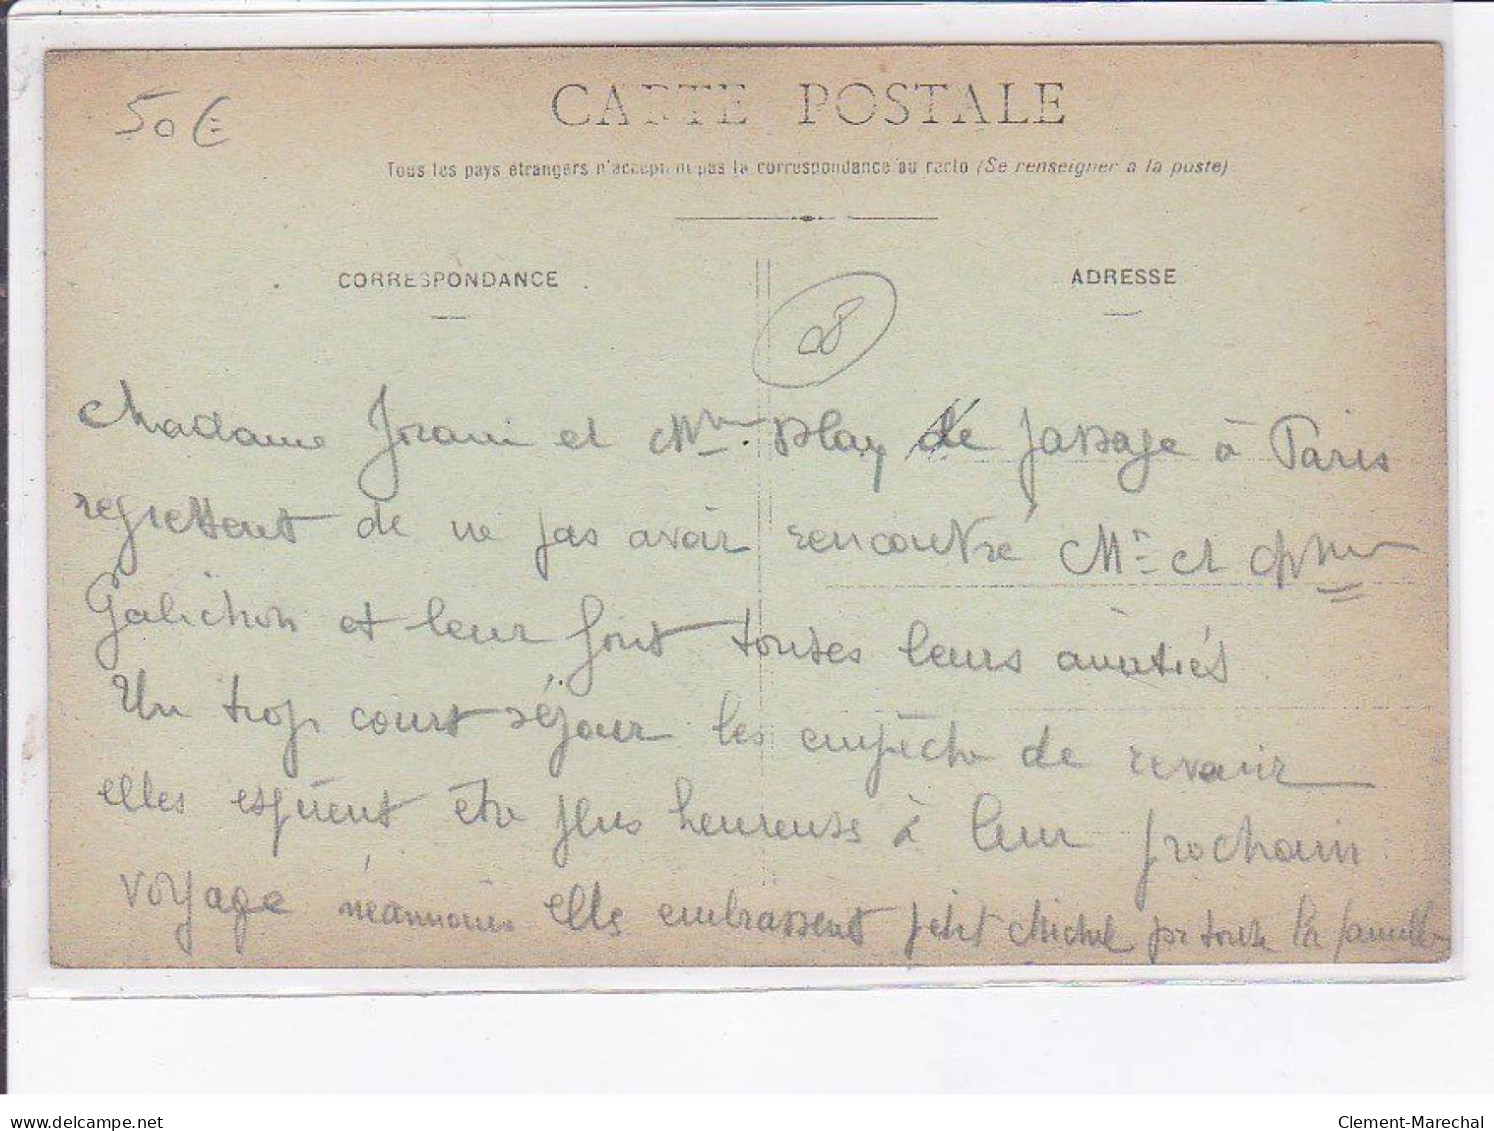 50€
CARTE POSTALE
Tous les pays étrangers n'acceptent pas la correspondance au recto (Se renseigner à la poste)
CORRESPONDANCE
ADRESSE
08
Madame et Mme. de passage à Paris
regrettent de ne pas avoir rencontré Mr et Mme
Galichon et leur font toutes leurs amitiés
Un trop court séjour les empêche de revenir
elles espèrent être plus heureuses à leur prochain
voyage néanmoins elles embrassent petit Michel pr toute la famille
delcampe.net
Clement-Marechal